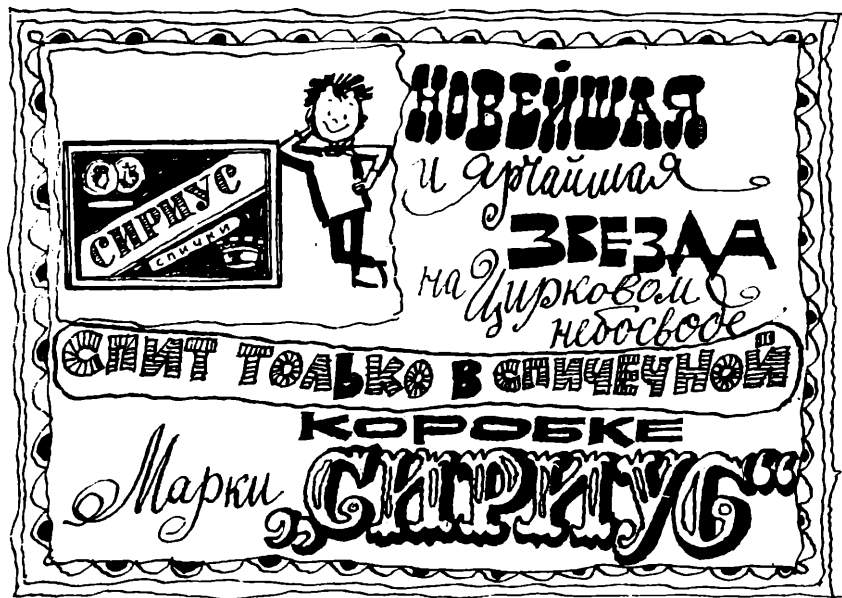 СИРИУС
СПИЧКИ
НОВЕЙШАЯ
и ярчайшая
ЗВЕЗДА
на Цирковом
небосводе
СПИТ ТОЛЬКО В СПИЧЕЧНОЙ
КОРОБКЕ
Марки „СИРИУС“